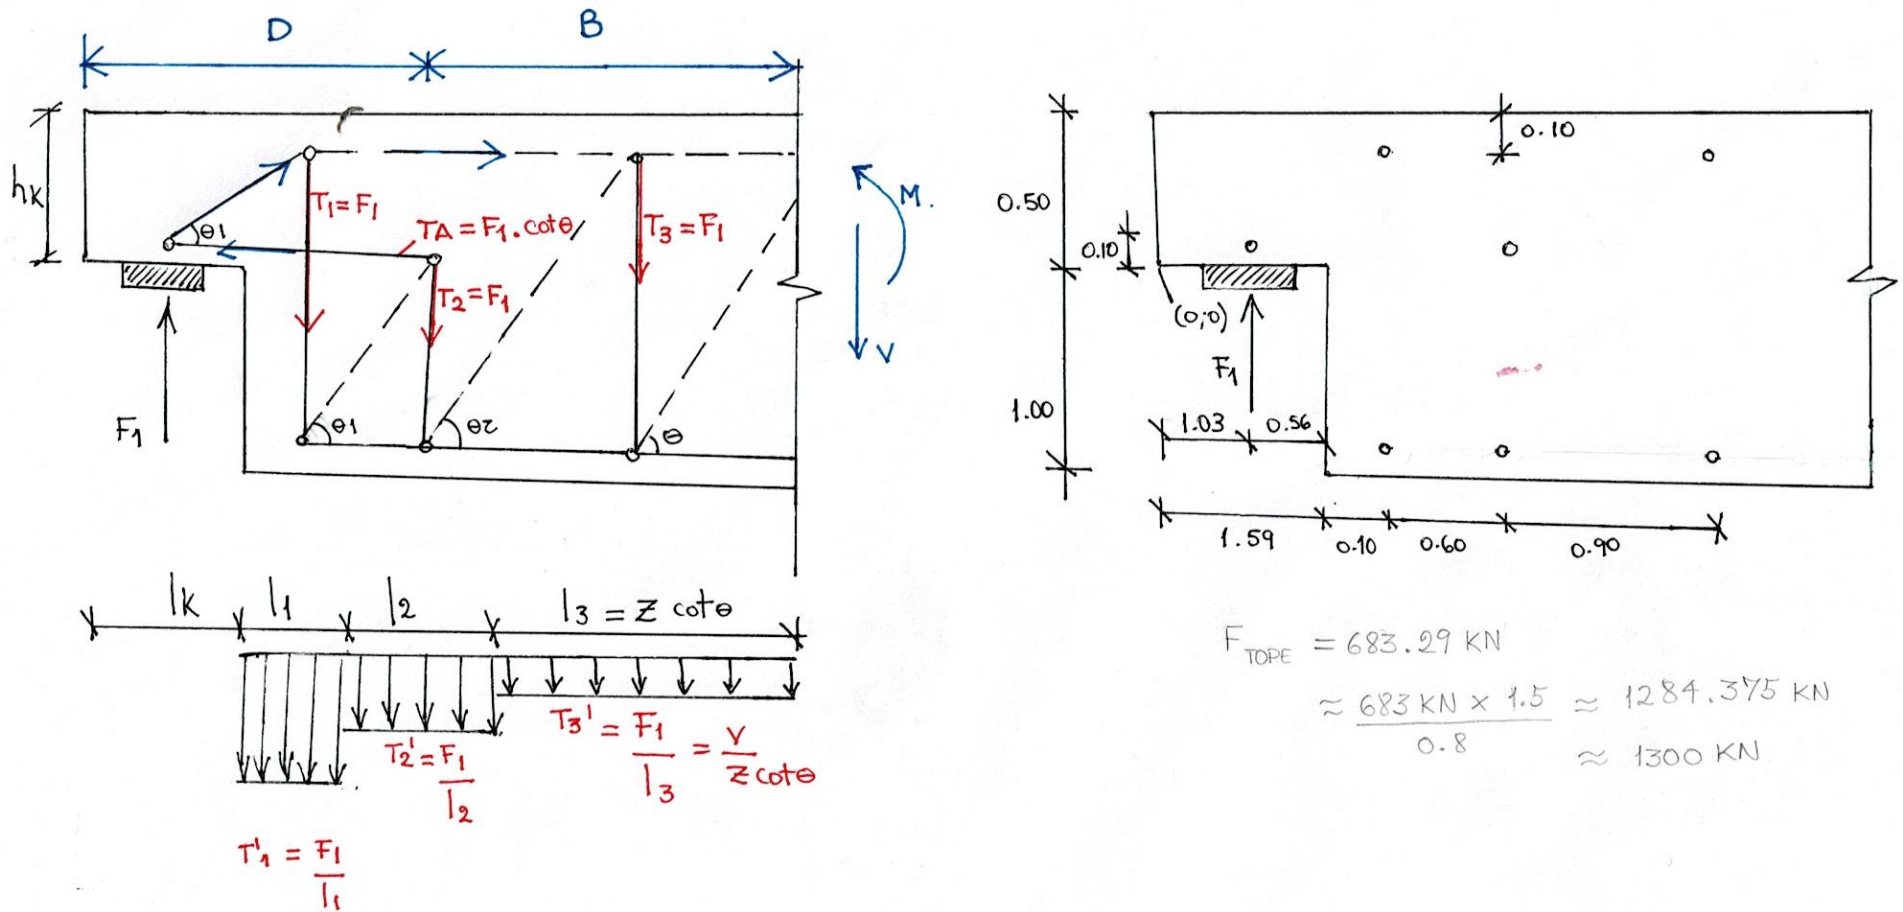 D
B
hk
θ1
T1 = F1
TA = F1 . cotθ
T2 = F1
T3 = F1
M.
V
F1
θ1
θ2
θ
lk
l1
l2
l3 = Z cotθ
T1' = F1 / l1
T2' = F1 / l2
T3' = F1 / l3 = V / Z cotθ
0.10
0.50
0.10
(0;0)
F1
1.00
1.03
0.56
1.59
0.10
0.60
0.90
F TOPE = 683.29 KN
≈ 683 KN x 1.5 / 0.8 ≈ 1284.375 KN
≈ 1300 KN